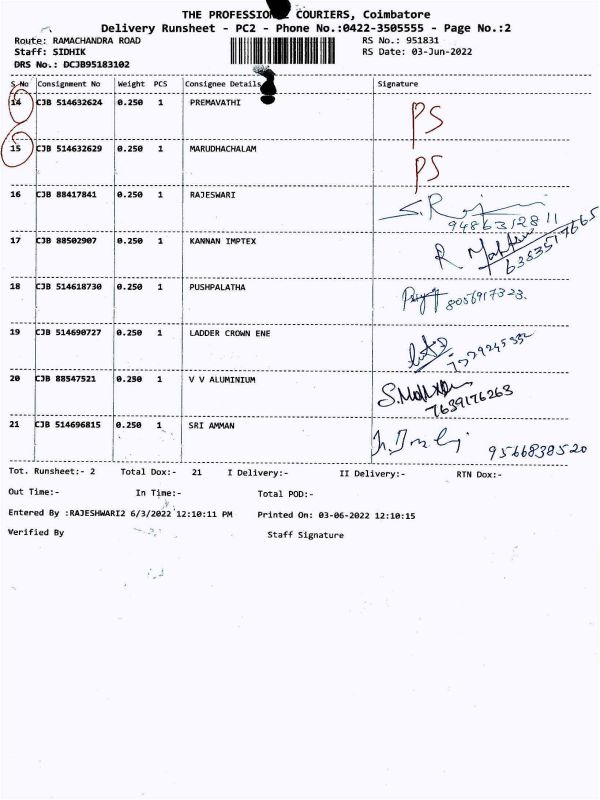 THE PROFESSIONAL COURIERS, Coimbatore
Delivery Runsheet - PC2 - Phone No.:0422-3505555 - Page No.:2
Route: RAMACHANDRA ROAD RS No.: 951831
Staff: SIDHIK RS Date: 03-Jun-2022
DRS No.: DCJB95183102
S.No Consignment No Weight PCS Consignee Details Signature
14 CJB 514632624 0.250 1 PREMAVATHI PS
15 CJB 514632629 0.250 1 MARUDHACHALAM PS
16 CJB 88417841 0.250 1 RAJESWARI
9486312811
17 CJB 88502907 0.250 1 KANNAN IMPTEX
6383517665
18 CJB 514618730 0.250 1 PUSHPALATHA 8056917323.
19 CJB 514690727 0.250 1 LADDER CROWN ENE
20 CJB 88547521 0.250 1 V V ALUMINIUM
7639176263
21 CJB 514696815 0.250 1 SRI AMMAN 9566838520
Tot. Runsheet:- 2 Total Dox:- 21 I Delivery:- II Delivery:- RTN Dox:-
Out Time:- In Time:- Total POD:-
Entered By :RAJESHWARI2 6/3/2022 12:10:11 PM Printed On: 03-06-2022 12:10:15
Verified By Staff Signature